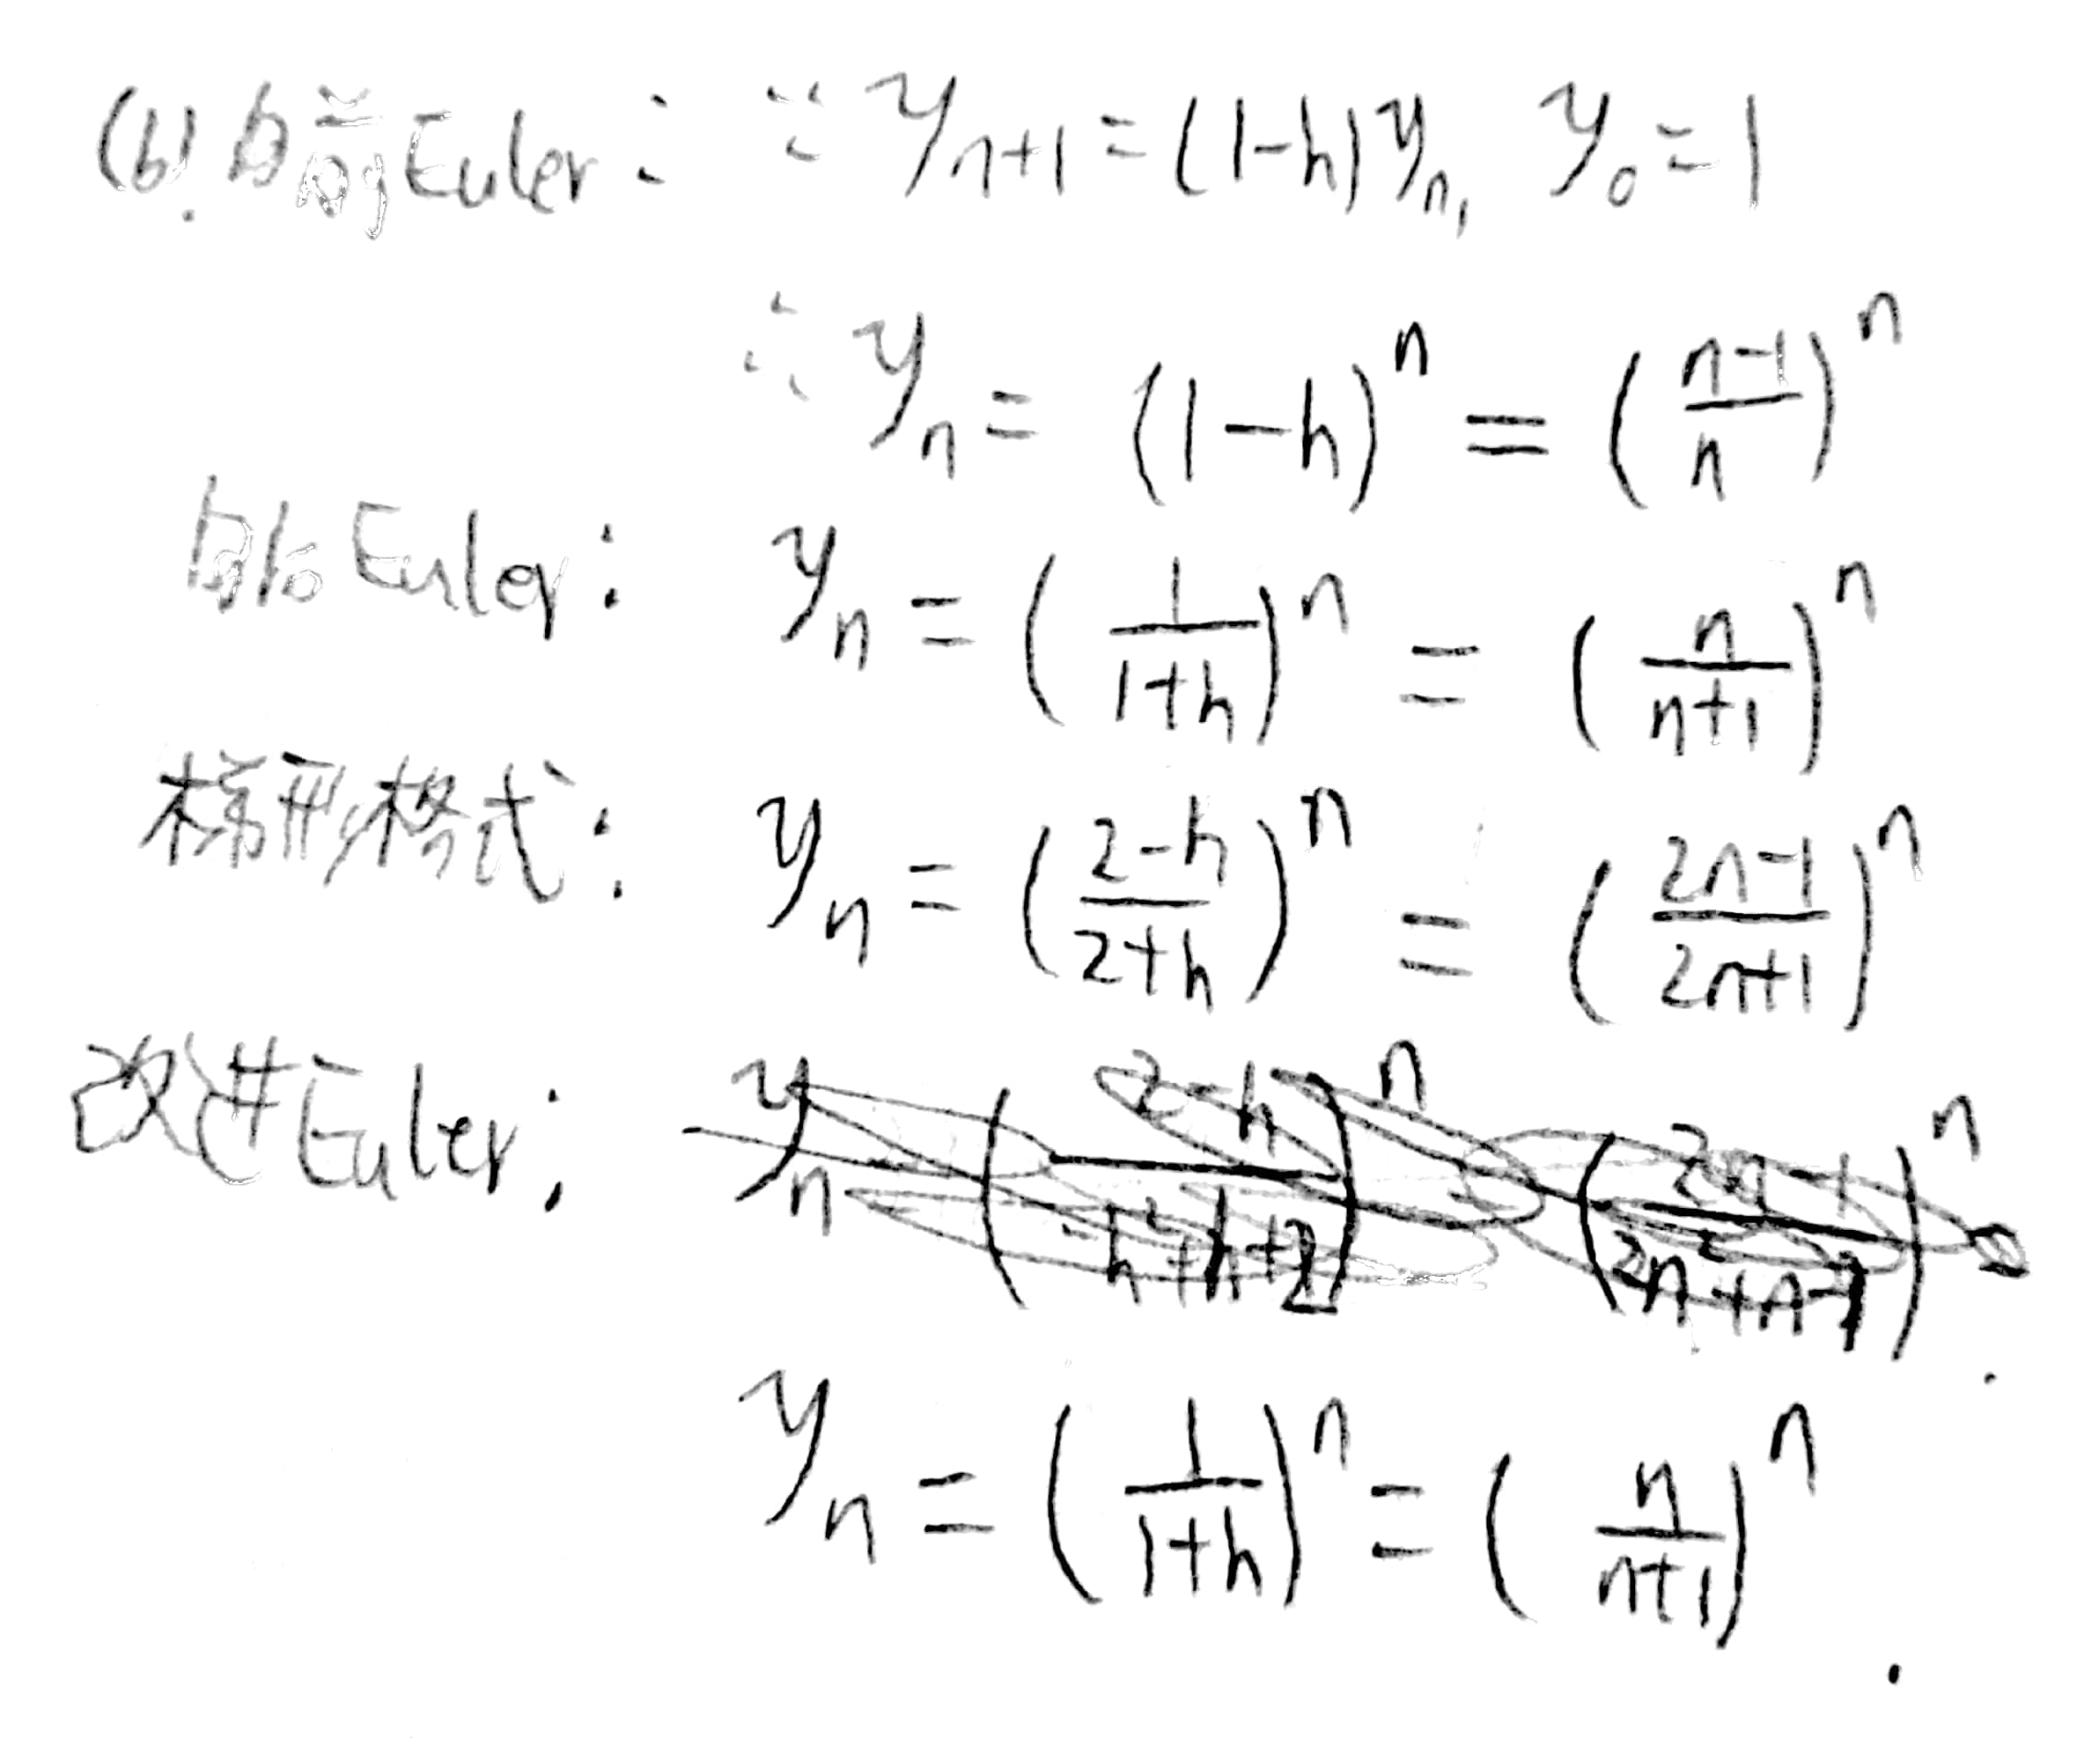 (b). 向前Euler: ∵ yₙ₊₁ = (1-h)yₙ, y₀ = 1
∴ yₙ = (1-h)ⁿ = ((n-1)/n)ⁿ
向后Euler: yₙ = (1/(1+h))ⁿ = (n/(n+1))ⁿ
梯形格式: yₙ = ((2-h)/(2+h))ⁿ = ((2n-1)/(2n+1))ⁿ
改进Euler:
yₙ = (1/(1+h))ⁿ = (n/(n+1))ⁿ.